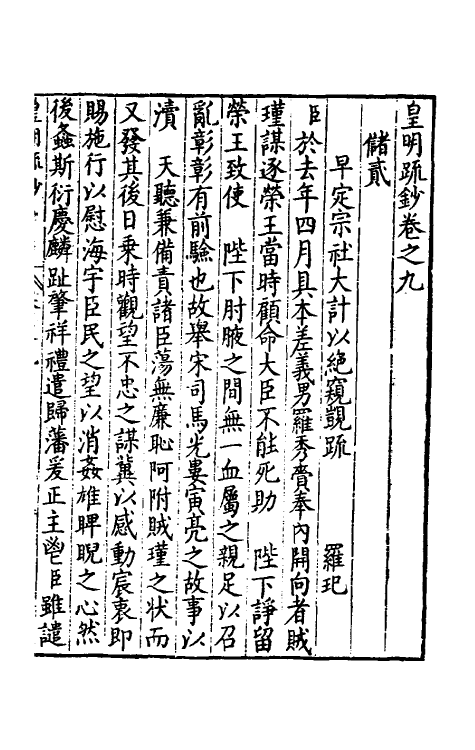 皇明疏鈔卷之九
儲貳
早定宗社大計以絶窺覬疏　羅玘
臣於去年四月具本差義男羅秀賫奉內開向者賊
瑾謀逐榮王當時顧命大臣不能死助　陛下諍留
榮王致使　陛下肘腋之間無一血屬之親足以召
亂彰彰有前驗也故舉宋司馬光婁寅亮之故事以
瀆　天聽兼備責諸臣蕩無廉恥阿附賊瑾之狀而
又發其後日乗時觀望不忠之謀冀以感動宸衷即
賜施行以慰海宇臣民之望以消姦雄睥睨之心然
後螽斯衍慶麟趾肇祥禮遣歸藩爰正主鬯臣雖譴